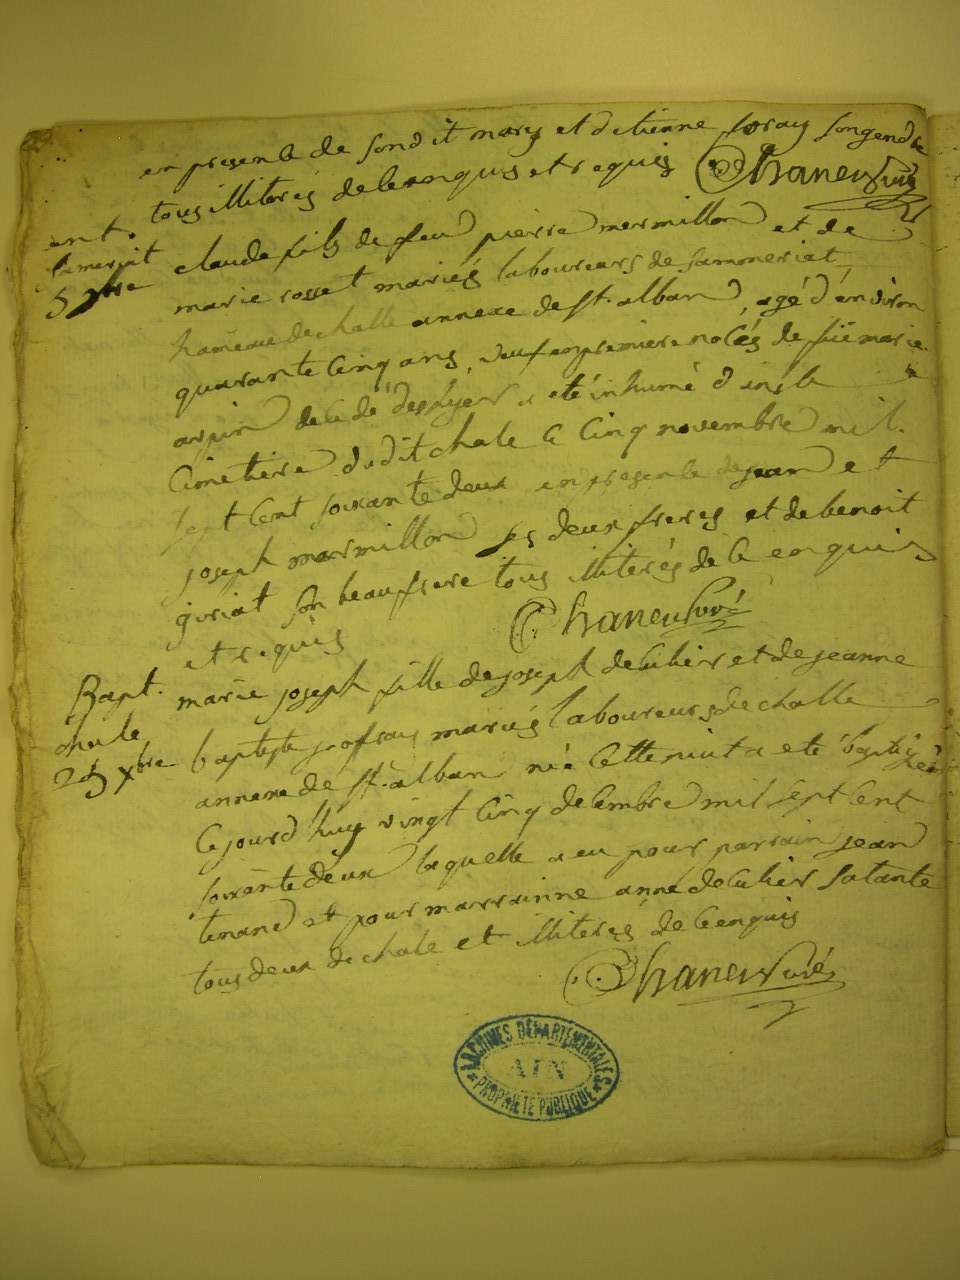 en presence de sondit mary et d'etienne soray son gendre
tous illiterés de ce enquis et requis Chaneu curé
ent.
sameriat
5 9bre
claude fils de feu pierre mermillon et de
marie rosset mariés laboureurs de sammeriat
hameau de challe annexe de st. alban, agé d'environ
quarante cinq ans, veuf en premiere noces de füe marie
arpin decedé a eté inhumé dans le
cimetiere dudit chale le cinq novembre mil
sept cent soixante deux en presence de jean et
joseph marmillon ses deux freres et de benoit
guriat son beaufrere tous illiterés de ce enquis
et requis Chaneu curé
Bapt.
chale
25 xbre
marie joseph fille de joseph decuhier et de jeanne
baptiste jeofray mariés laboureurs de challe
annexe de st. alban née cette nuit a eté baptisée
ce jourd'huy vingt cinq decembre mil sept cent
soixante deux laquelle a eu pour parrain jean
tenand et pour marrainne anne decuhier sa tante
tous deux de chale et illiterés de ce enquis
Chaneu curé
ARCHIVES DÉPARTEMENTALES
AIN
PROPRIÉTÉ PUBLIQUE